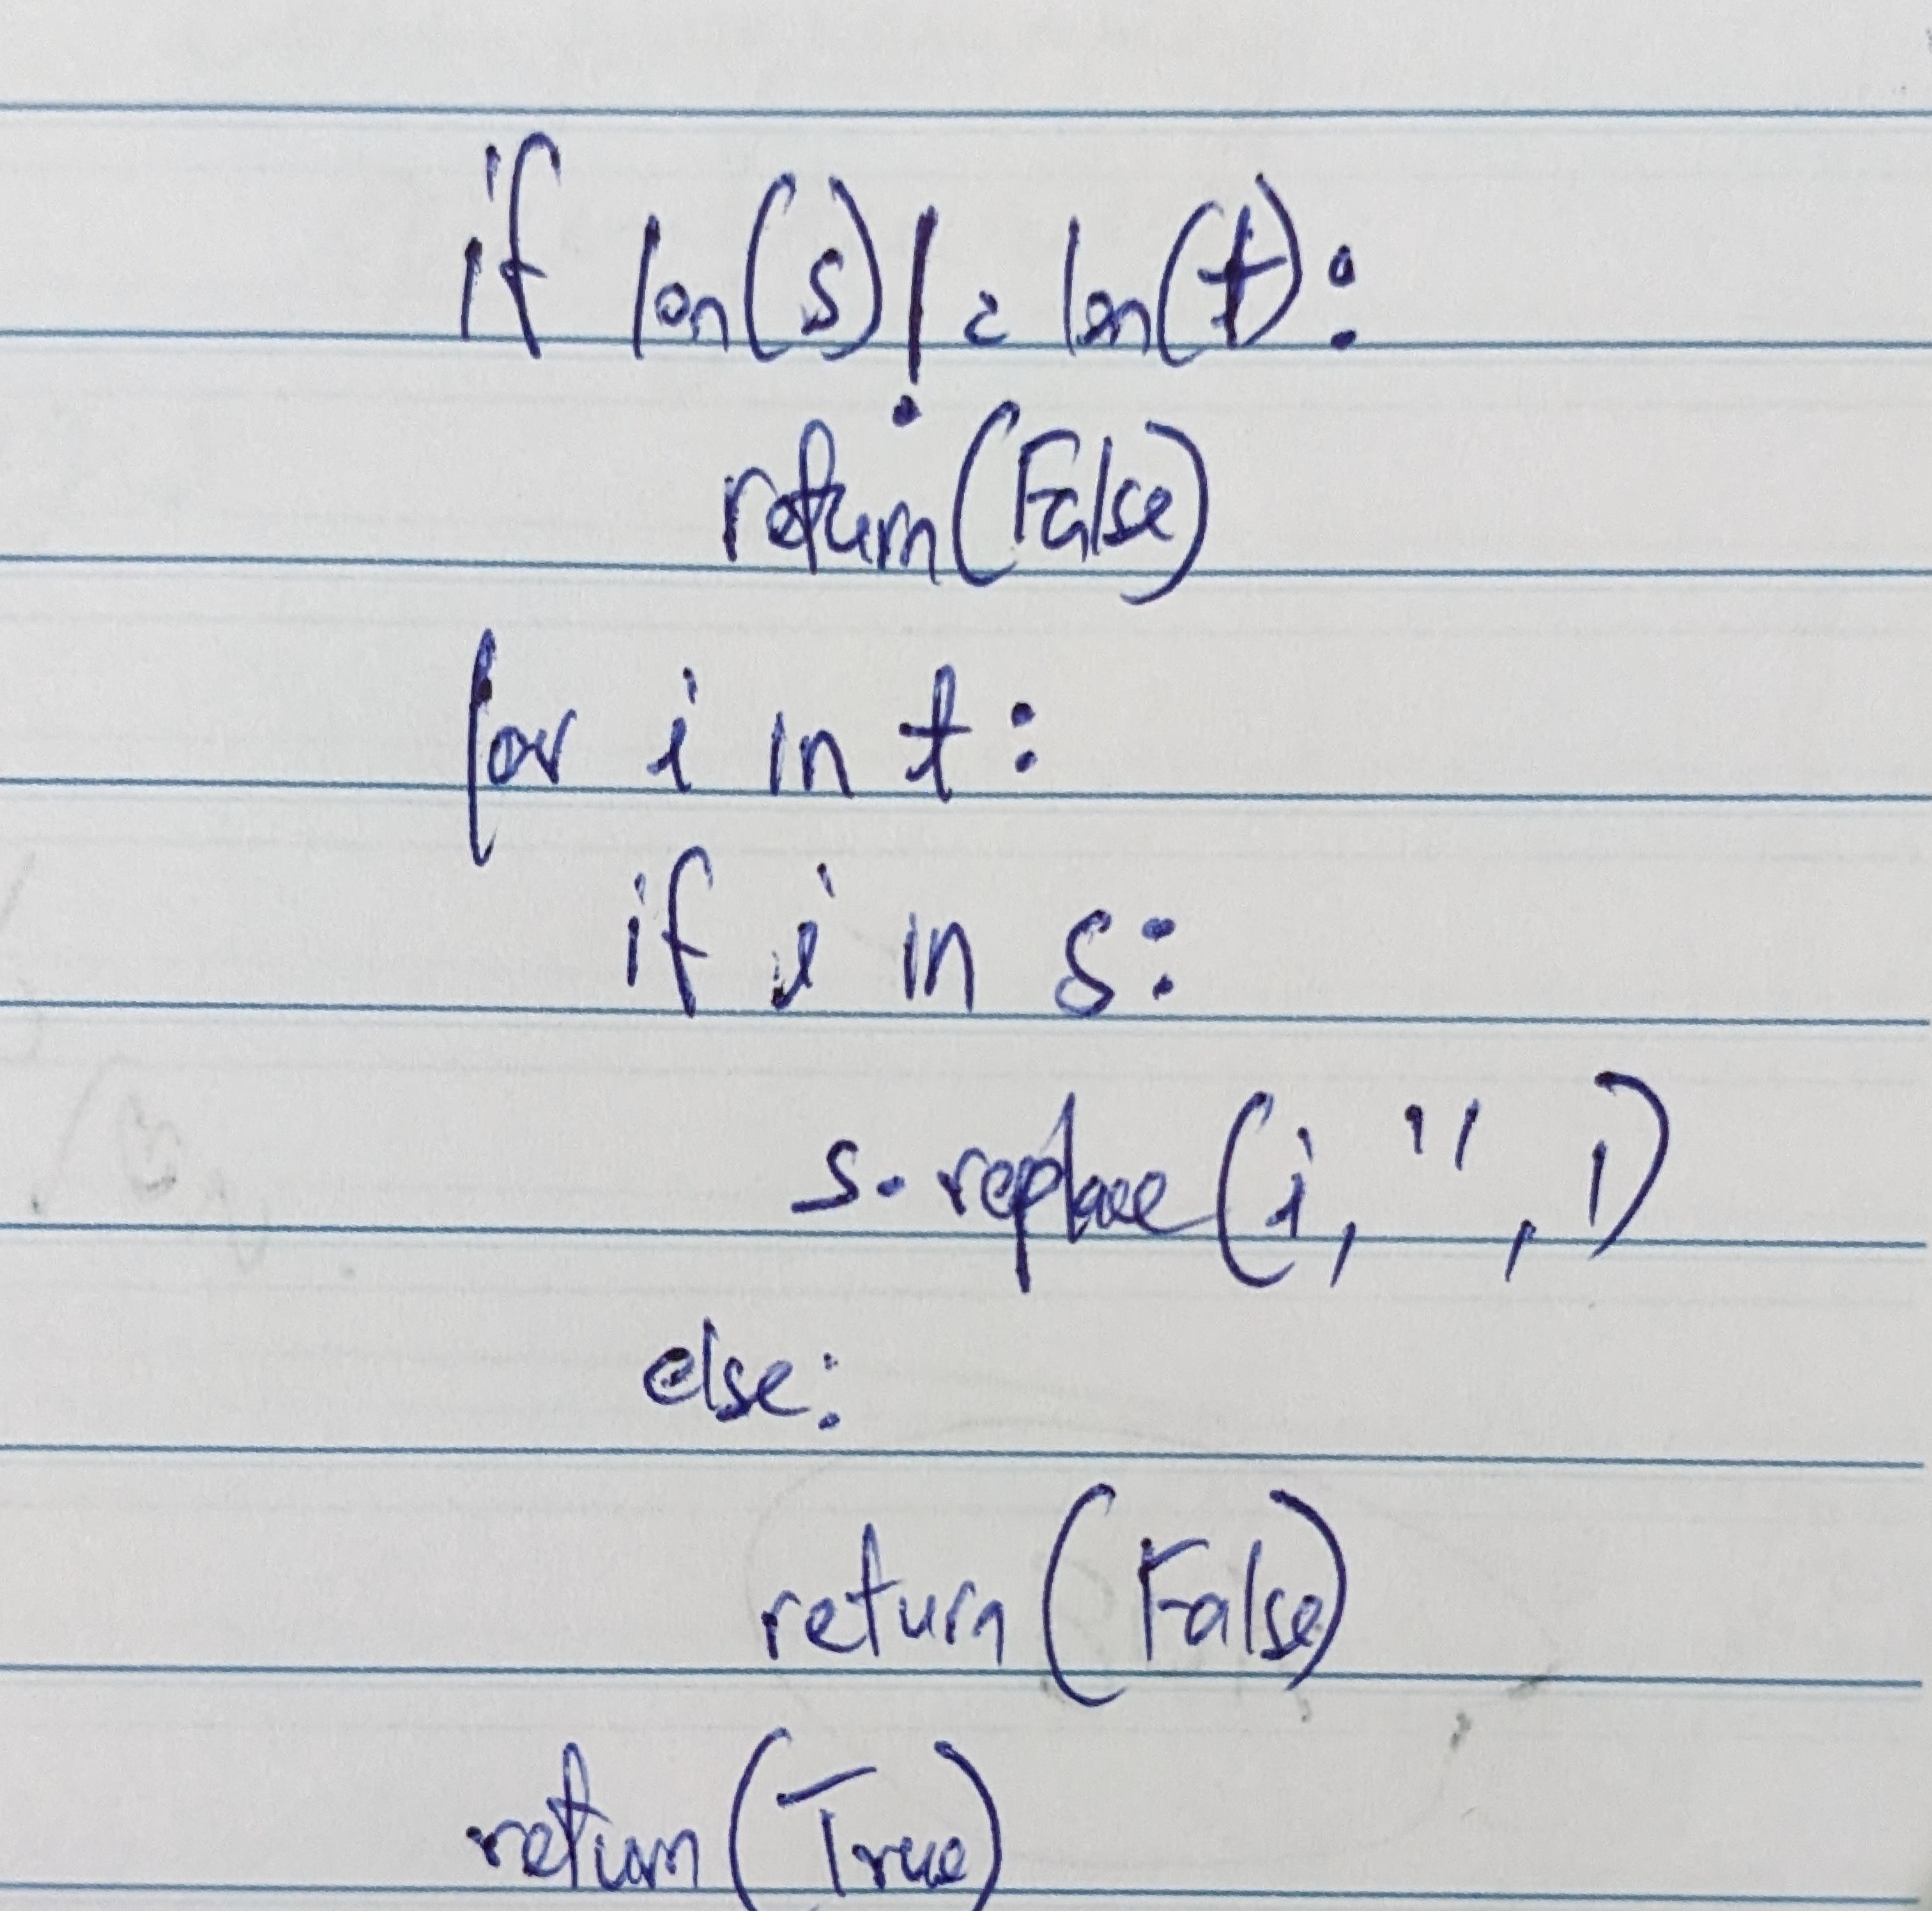 if len(s) != len(t):
return(False)
for i in t:
if i in s:
s.replace(i, '', 1)
else:
return(False)
return(True)